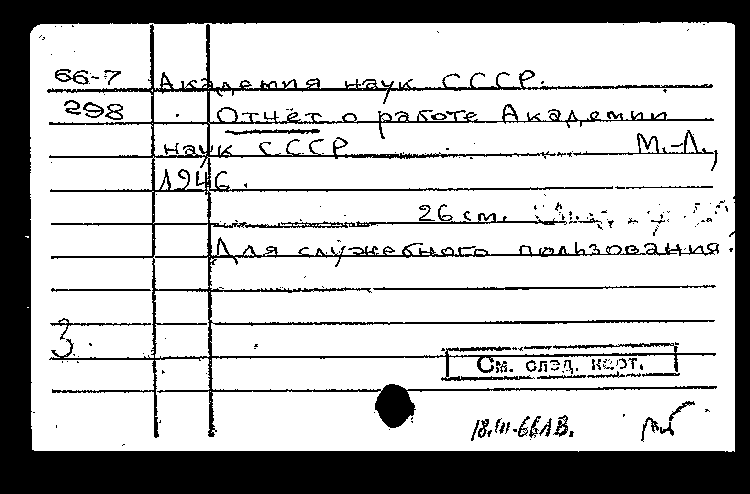 66-7 Академия наук СССР.
298 Отчёт о работе Академии
наук СССР М.-Л.,
1946.
26 см.
Для служебного пользования.
3.
См. след. карт.
18.III-66 ЛВ.